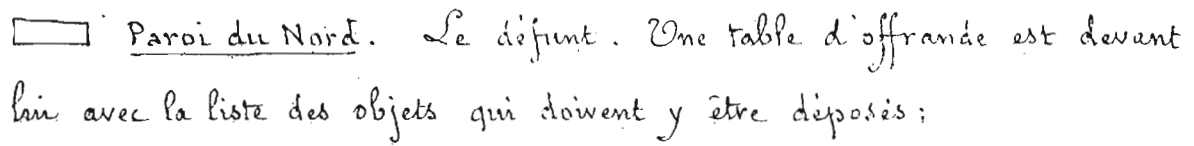 Paroi du Nord. Le défunt. Une table d'offrande est devant
lui avec la liste des objets qui doivent y être déposés ;